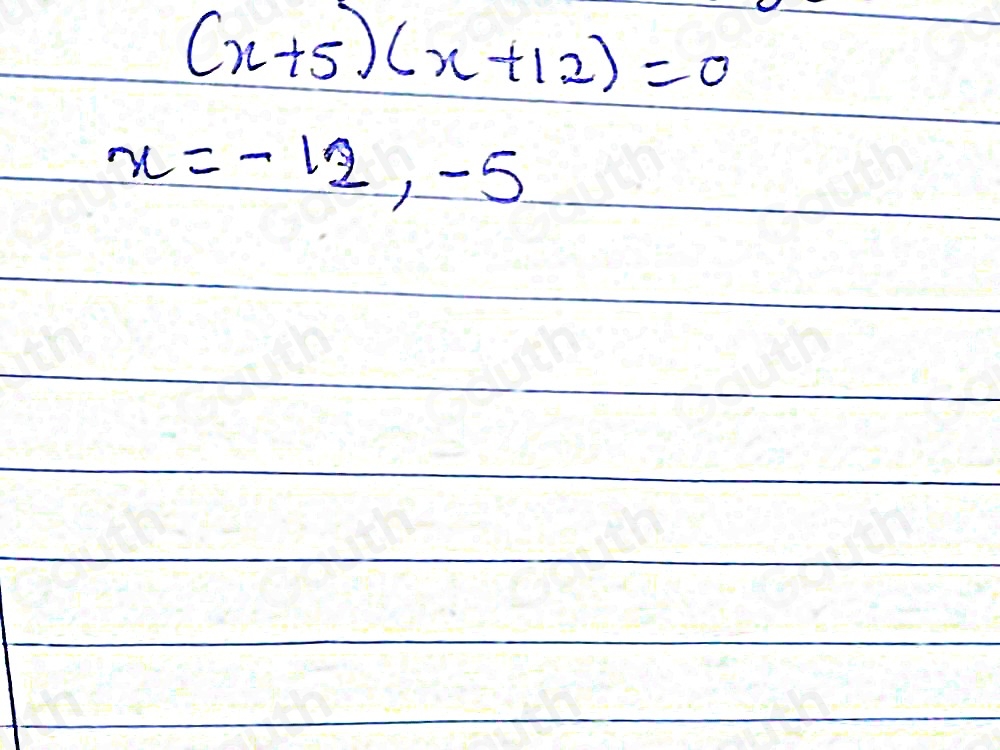 (x+5)(x+12)=0
x=-12,-5